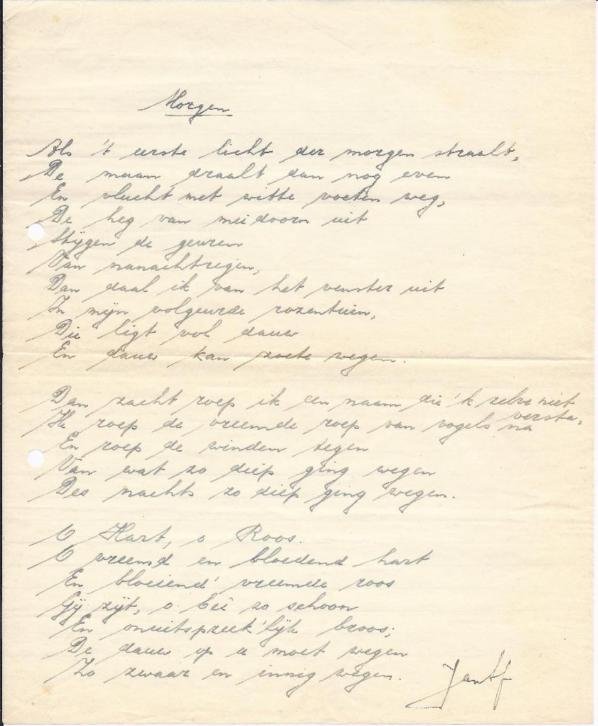 Morgen
Als 't eerste licht der morgen straalt,
De maan draalt dan nog even
En vlucht met witte voeten weg,
De heg van meidoorn uit
Stijgen de geuren
Van nanachtregen,
Dan daal ik van het venster uit
In mijn volgeurde rozentuin,
Die ligt vol dauw
En dauw kan zoete wegen.
Dan zacht roep ik een naam die 'k zelve niet versta,
Ik roep de vreemde roep van vogels na
En roep de winden tegen
Van wat zo diep ging wegen
Des nachts zo diep ging wegen.
O Hart, o Roos.
O vreemd en bloedend hart
En bloeiend' vreemde roos
Gij zijt, o bei zo schoon
En onuitspreek'lijk broos;
De dauw op u moet wegen
Zo zwaar en innig wegen.